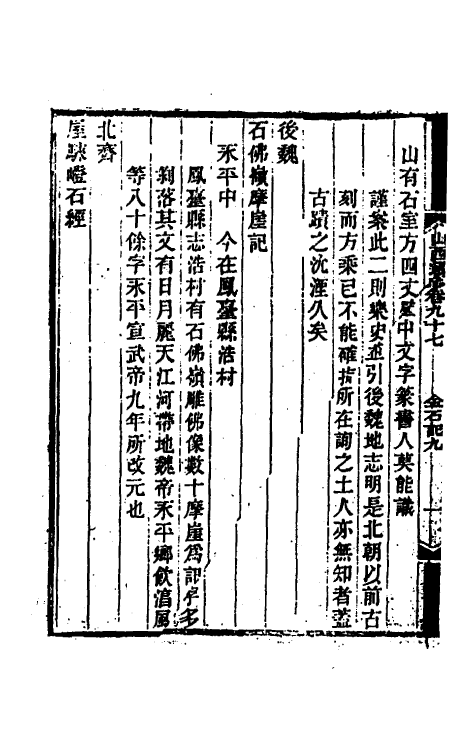 山有石室方四丈屋中文字篆書人莫能識
謹案此二則樂史並引後魏地志明是北朝以前古
刻而方乘已不能確指所在詢之土人亦無知者蓋
古蹟之沈湮久矣
後魏
石佛嶺摩崖記
永平中　今在鳳臺縣浩村
鳳臺縣志浩村有石佛嶺雕佛像數十摩崖爲記字多
剝落其文有日月麗天江河帶地魏帝永平鄉飲
等八十餘字永平宣武帝九年所改元也
北齊
石經
山西通志卷九十七
金石記九